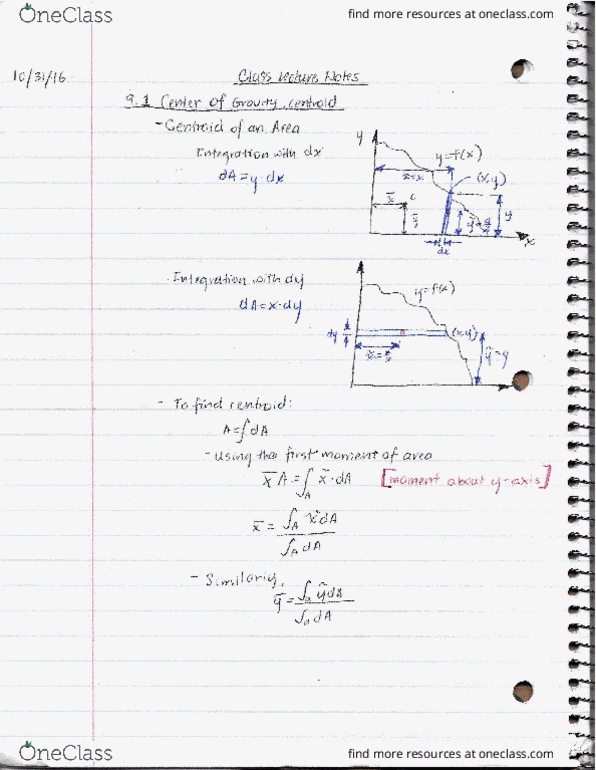 OneClass
find more resources at oneclass.com
10/31/16
Class Lecture Notes
9.1 Center of Gravity, centroid
- Centroid of an Area
Integration with dx
dA = y · dx
y
y=f(x)
x̃=x
(x,y)
x̄
c
ȳ
y
x
dx
Integration with dy
dA = x · dy
y=f(x)
dy
(x,y)
x̃=x/2
ỹ=y
- To find centroid:
A = ∫ dA
- Using the first moment of area
x̄ A = ∫_A x̃ · dA [moment about y-axis]
x̄ = ∫_A x̃ dA / ∫_A dA
- Similarly,
ȳ = ∫_a ỹ dA / ∫_a dA
OneClass
find more resources at oneclass.com